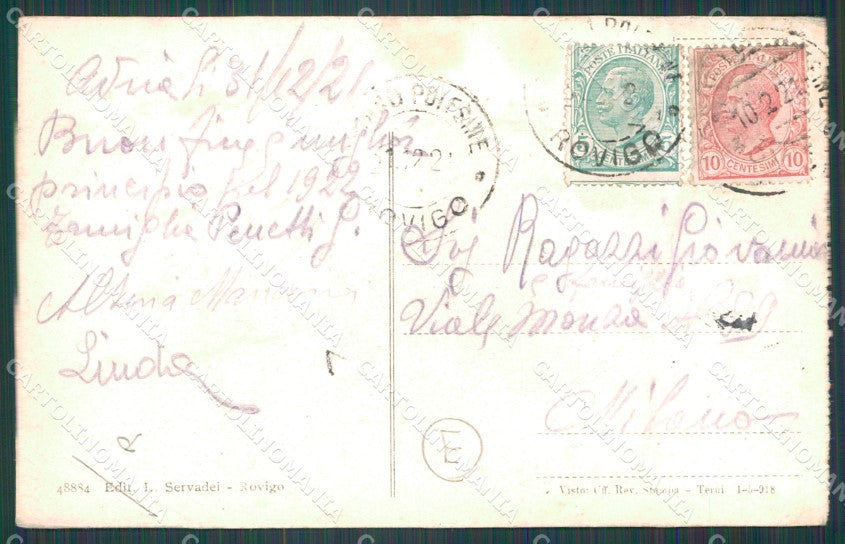 Adria li 31/12/21
Buon fine e miglior
principio del 1922
Famiglia Penetti G.
Linda
POLESINE
ROVIGO
POSTE ITALIANE
ROVIGO
10 CENTESIMI 10
10.2.2
Sig Ragazzi Giovanni
e famiglia
Viale Monza
Milano
48884 Edit. L. Servadei - Rovigo
Visto: Uff. Rev. Stampa - Terni 1-5-918
CARTOLINOMANIA